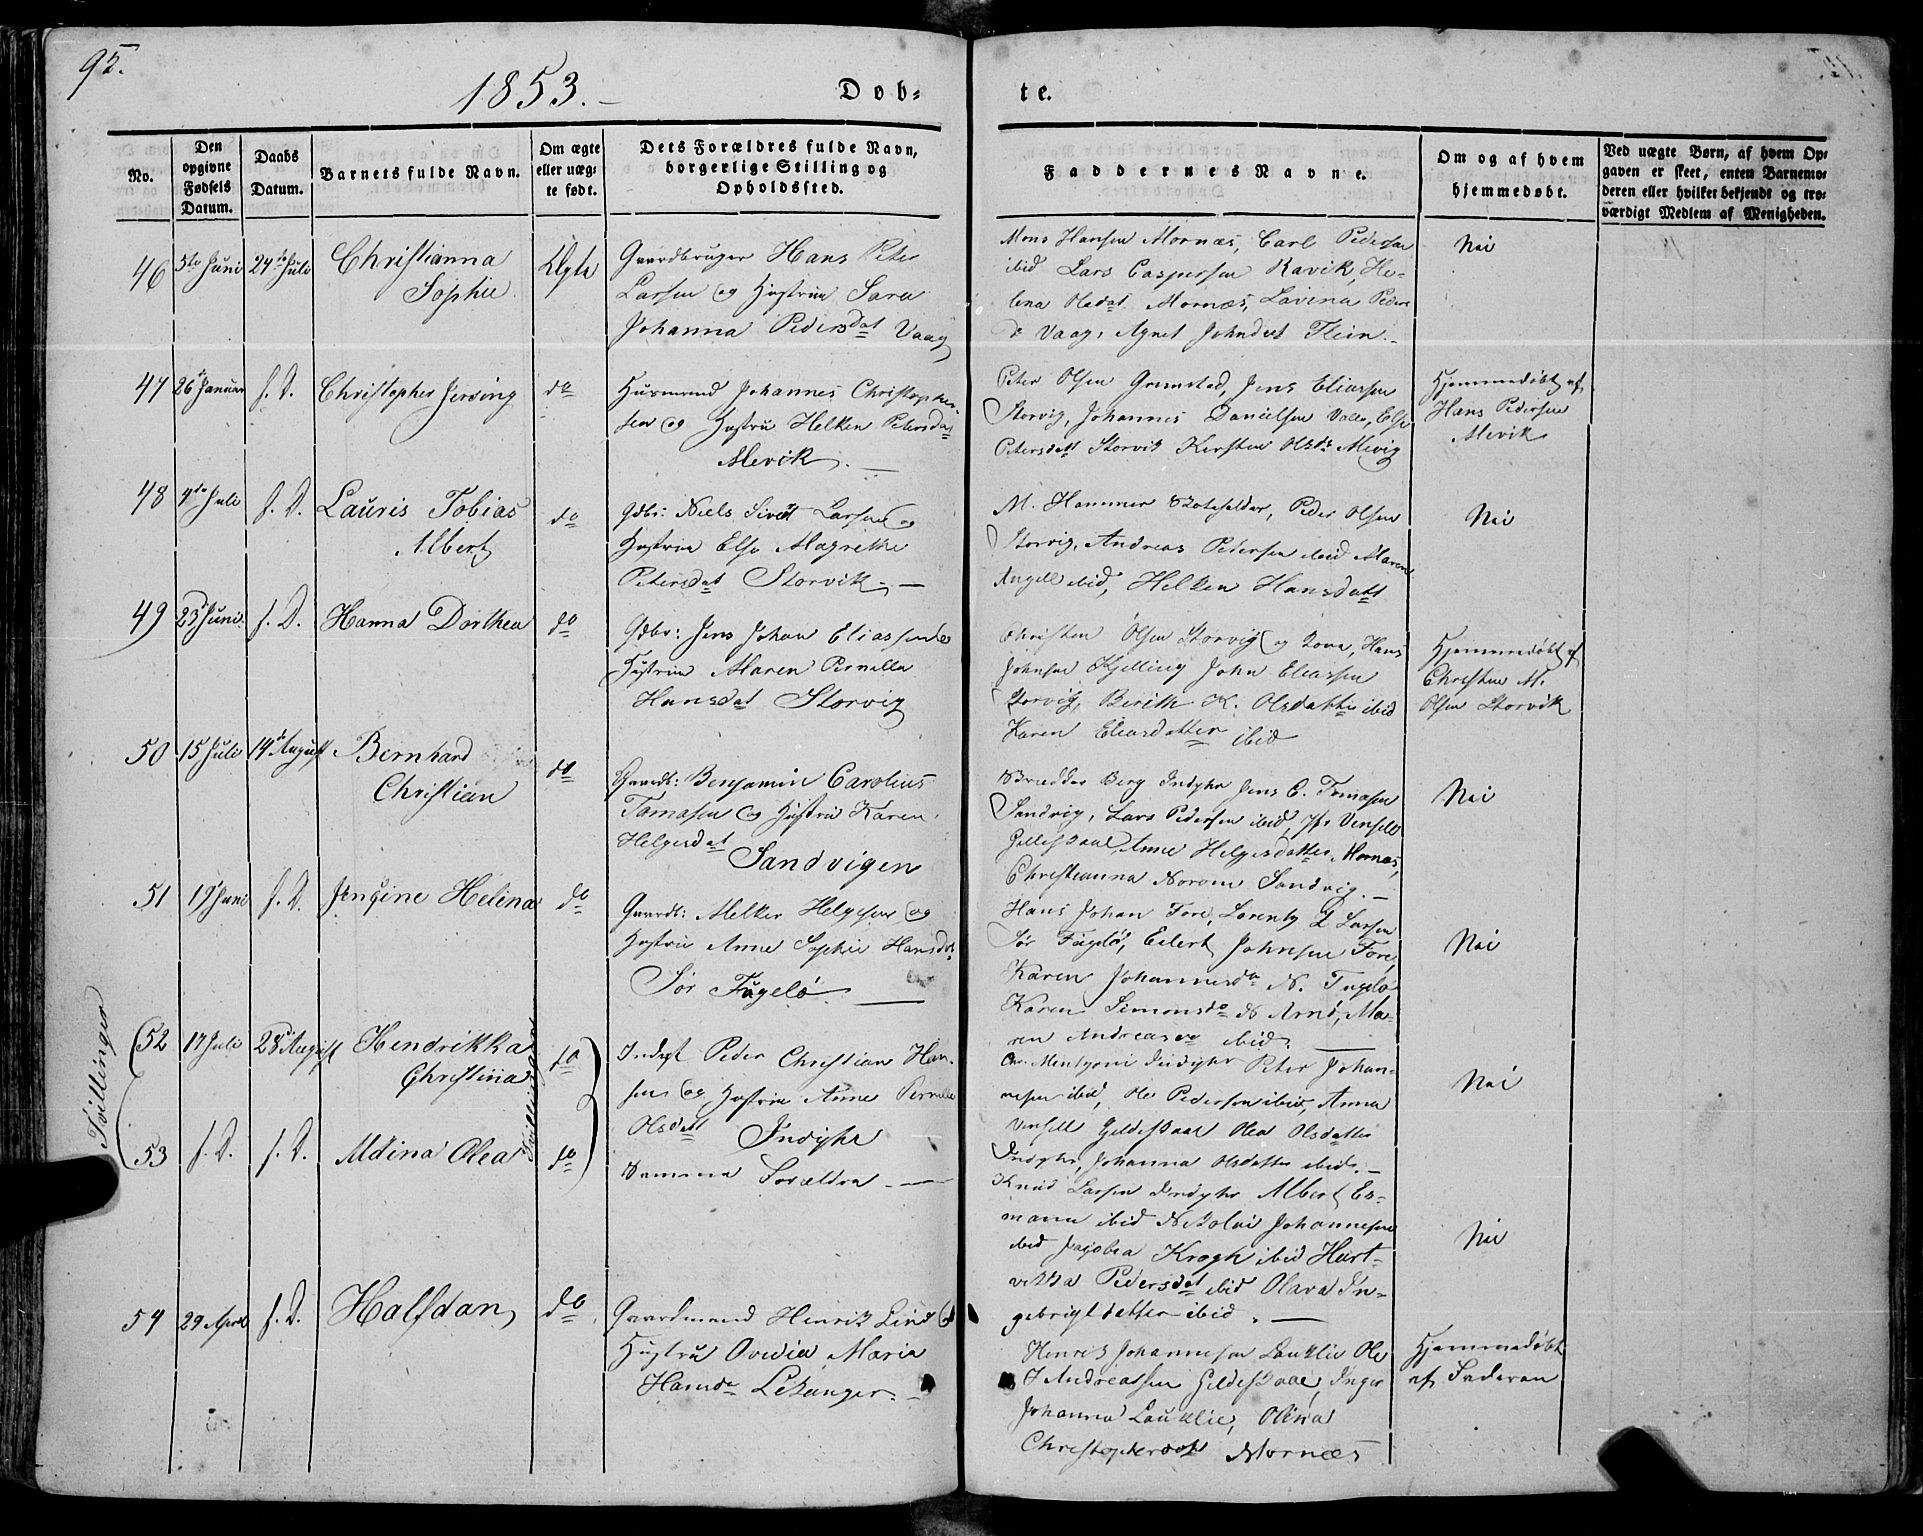 95.
1853.
Døb-
te.
No.
Den
opgivne
Fødsels
Datum.
Daabs
Datum.
Barnets fulde Navn.
Om ægte
eller uæg-
te født.
Dets Forældres fulde Navn,
borgerlige Stilling og
Opholdssted.
Faddernes Navne.
Om og af hvem
hjemmedøbt.
Ved uægte Børn, af hvem Op-
gaven er skeet, enten Barnemo-
deren eller hvilket bekjendt og tro-
værdigt Medlem af Menigheden.
46 5te Juni 24de Juli Christianna
Sophie
Ægte
Gaardbruger Hans Peter
Larsen og Hustrue Sara
Johanna Pedersdat Vaag
Mons Hansen Mornæs, Carl Pedersen
ibid Lars Caspersen Ravik, He-
lena Olsdat Mornæs, Lavina Peders
d Vaag, Agnet Johnsdat Flein
Nei
47 26 Januar s. D. Christopher Jerving
do
Husmand Johannes Christopher-
sen og Hustru Helken Petersdat
Mevik.
Peter Olsen Grimstad, Jens Eliassen
Storvig, Johannes Danielsen Valle, Else
Petersdatt Storvik Kirsten Olsdr Mevig
Hjemmedøbt af
Hans Pedersen
Mevik
48 7de Juli s. D. Lauris Tobias
Albert
do
Gdbr: Niels Sivert Larsen og
Hustrue Else Magrethe
Petersdat Storvik
M. Hammer Peder Olsen
Storvig, Andreas Pedersen ibid Maren
Angell ibid, Helken Hansdatt
Nei
49 23 Juni s. D. Hanna Dorthea
do
Gdbr: Jens Johan Eliassen &
Hustrue Maren Pernella
Hansdat Storvig
Christen Olsen Storvig og Kone, Hans
Johnsen Kjelling John Eliassen
Storvig, Berith K. Olsdatter ibid
Karen Eliasdatter ibid
Hjemmedøbt af
Christen M.
Olsen Storvik
50 15 Juli 14de August Bernhard
Christian
do
Gaardb: Benjamin Carolius
Tomasen og Hustrue Karen
Helgesdat Sandvigen
Berg Indyhr Jens C. Tomasen
Sandvig, Lars Pedersen ibid, Vensell
Gilleskaal, Anne Helgesdatter Mornæs,
Christianna Norum Sandvig.
Nei
51 19 Juni s. D. Jensine Helena
do
Gaardb: Melker Helgesen og
Hustrue Anne Sophie Hansdr
Sør Fugelø.
Hans Johan Fore, Lorentz L Larsen
Sør Fugelø, Eilert Johnsen Fore,
Karen Johannesd N. Fugelø
Karen Simonsdr N Arnø, Ma-
ren Andreasd ibid.
Nei
Tvillinger
52 17 Juli 28 August Hendrikka
Christina
Tvillinger
do
Indst Peder Christian Han-
sen og Hustrue Anne Pernille
Olsdatt Indyhr
Chr. Indyhr Peter Johan-
nesen ibid, Ole Pedersen ibid, Anna
Vensell Gildeskaal Olea Olsdatter
Indyhr, Johanna Olsdatter ibid.
Nei
53 s. D. s. D. Aldina Olea
do
Samme Forældre
Knud Larsen Indyhr Albert Es-
mann ibid Nikolai Johannesen
ibid Jacobea Krogh ibid Hart-
vikka Pedersdat ibid Olava In-
gebrigtdatter ibid.
Nei
54 29 April s. D. Halfdan
do
Gaardmand Henrik Lind &
Hustru Ovedia Maria
Hansdr Lekanger
Henrik Johannesen Lauklie Ole
J Andreassen Gildeskaal, Inger
Johanna Lauklie, Olina
Christophersdat Mornæs
Hjemmedøbt
af Faderen